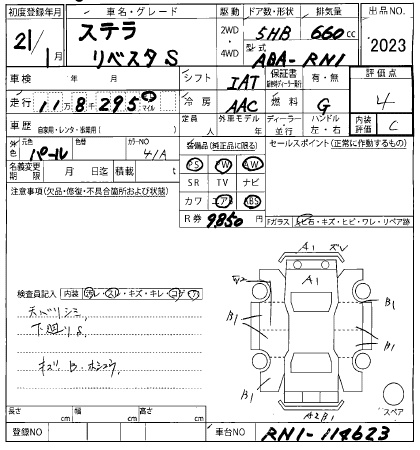 初度登録年月 車名・グレード 駆動 ドア数・形状 排気量 出品NO
21年 1月 ステラ リベスタS 2WD ・ 4WD 5HB 660cc 2023
型式 ABA-RN1
車検 年 月 シフト IAT 保証書 有・無 評価点 4
走行 11万8千295 km マイル 冷房 AAC 燃料 G
車歴 自家用・レンタ・事業用( ) 定員 人 外車モデル 年 ディーラー・並行 ハンドル 左・右 内装評価 C
外色 元色 パール 色替 カラーNO 41A
装備品(純正品に限る) セールスポイント(正常に作動するもの)
PS PW AW
名義変更期限 月 日迄 積載 t
SR TV ナビ
注意事項(欠品・修復・不具合箇所および状態)
カワ エアB ABS
R券 9,850円
Fガラス トビ石・キズ・ヒビ・ワレ・リペア跡
A1 ズレ
A1
検査員記入 内装 汚レ・スレ・キズ・キレ・コゲ・穴
B1
B1
天バリシミ
下廻りS
B1
B1
A2B1
スペア
長さ cm 幅 cm 高さ cm
登録NO 車台NO RN1-114623